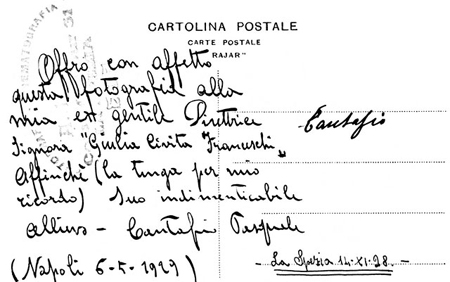 CARTOLINA POSTALE
CARTE POSTALE
"RAJAR"
Offro con affetto
questa fotografia alla
mia ex gentile Direttrice
Signora "Giulia Civita Franceschi"
Affinché (la tenga per mio
ricordo) Suo indimenticabile
Allievo - Cantafio Pasquale
(Napoli 6-5-1929)
Cantafio
La Spezia 14-XI-28-